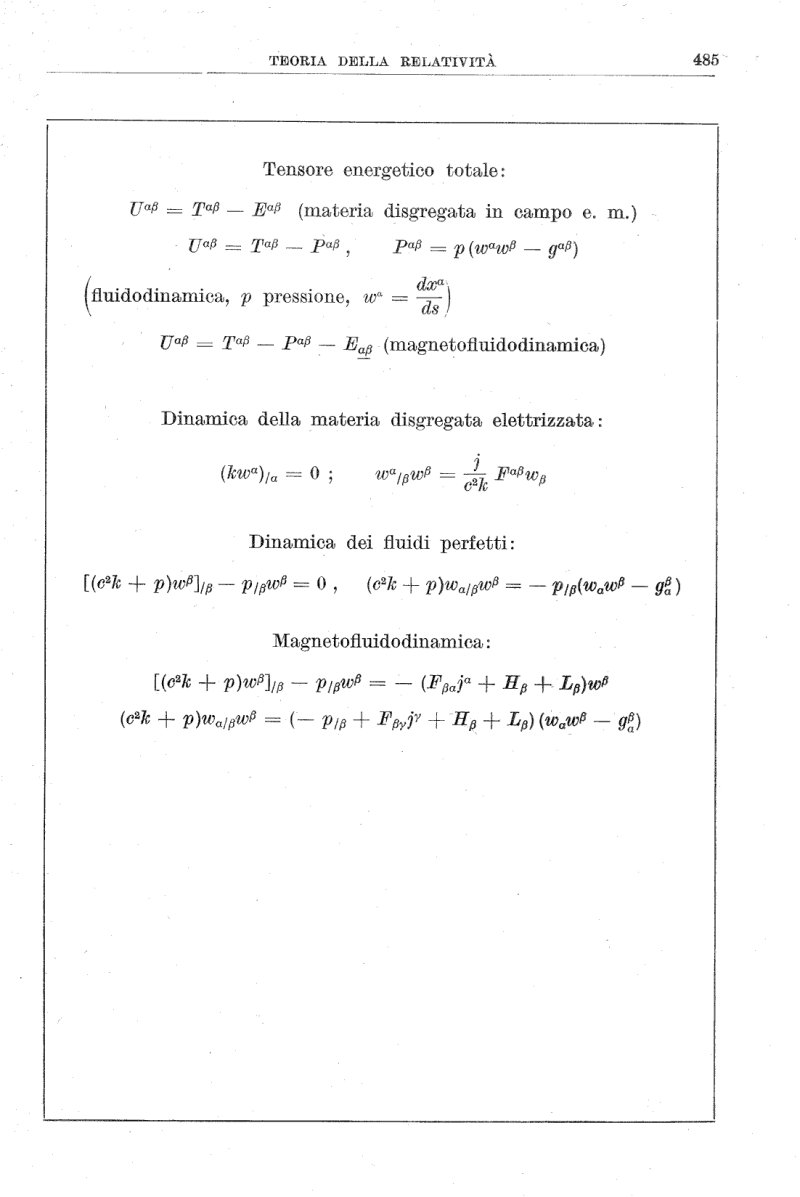 TEORIA DELLA RELATIVITÀ 485
Tensore energetico totale:
U^{αβ} = T^{αβ} — E^{αβ} (materia disgregata in campo e. m.)
U^{αβ} = T^{αβ} — P^{αβ} , P^{αβ} = p (w^α w^β — g^{αβ})
(fluidodinamica, p pressione, w^α = dx^α/ds)
U^{αβ} = T^{αβ} — P^{αβ} — E_{αβ} (magnetofluidodinamica)
Dinamica della materia disgregata elettrizzata:
(kw^α)_{/α} = 0 ; w^α_{/β}w^β = j/c²k F^{αβ}w_β
Dinamica dei fluidi perfetti:
[(c²k + p)w^β]_{/β} — p_{/β}w^β = 0 , (c²k + p)w_{α/β}w^β = — p_{/β}(w_αw^β — g_α^β)
Magnetofluidodinamica:
[(c²k + p)w^β]_{/β} — p_{/β}w^β = — (F_{βα}j^α + H_β + L_β)w^β
(c²k + p)w_{α/β}w^β = (— p_{/β} + F_{βγ}j^γ + H_β + L_β) (w_αw^β — g_α^β)